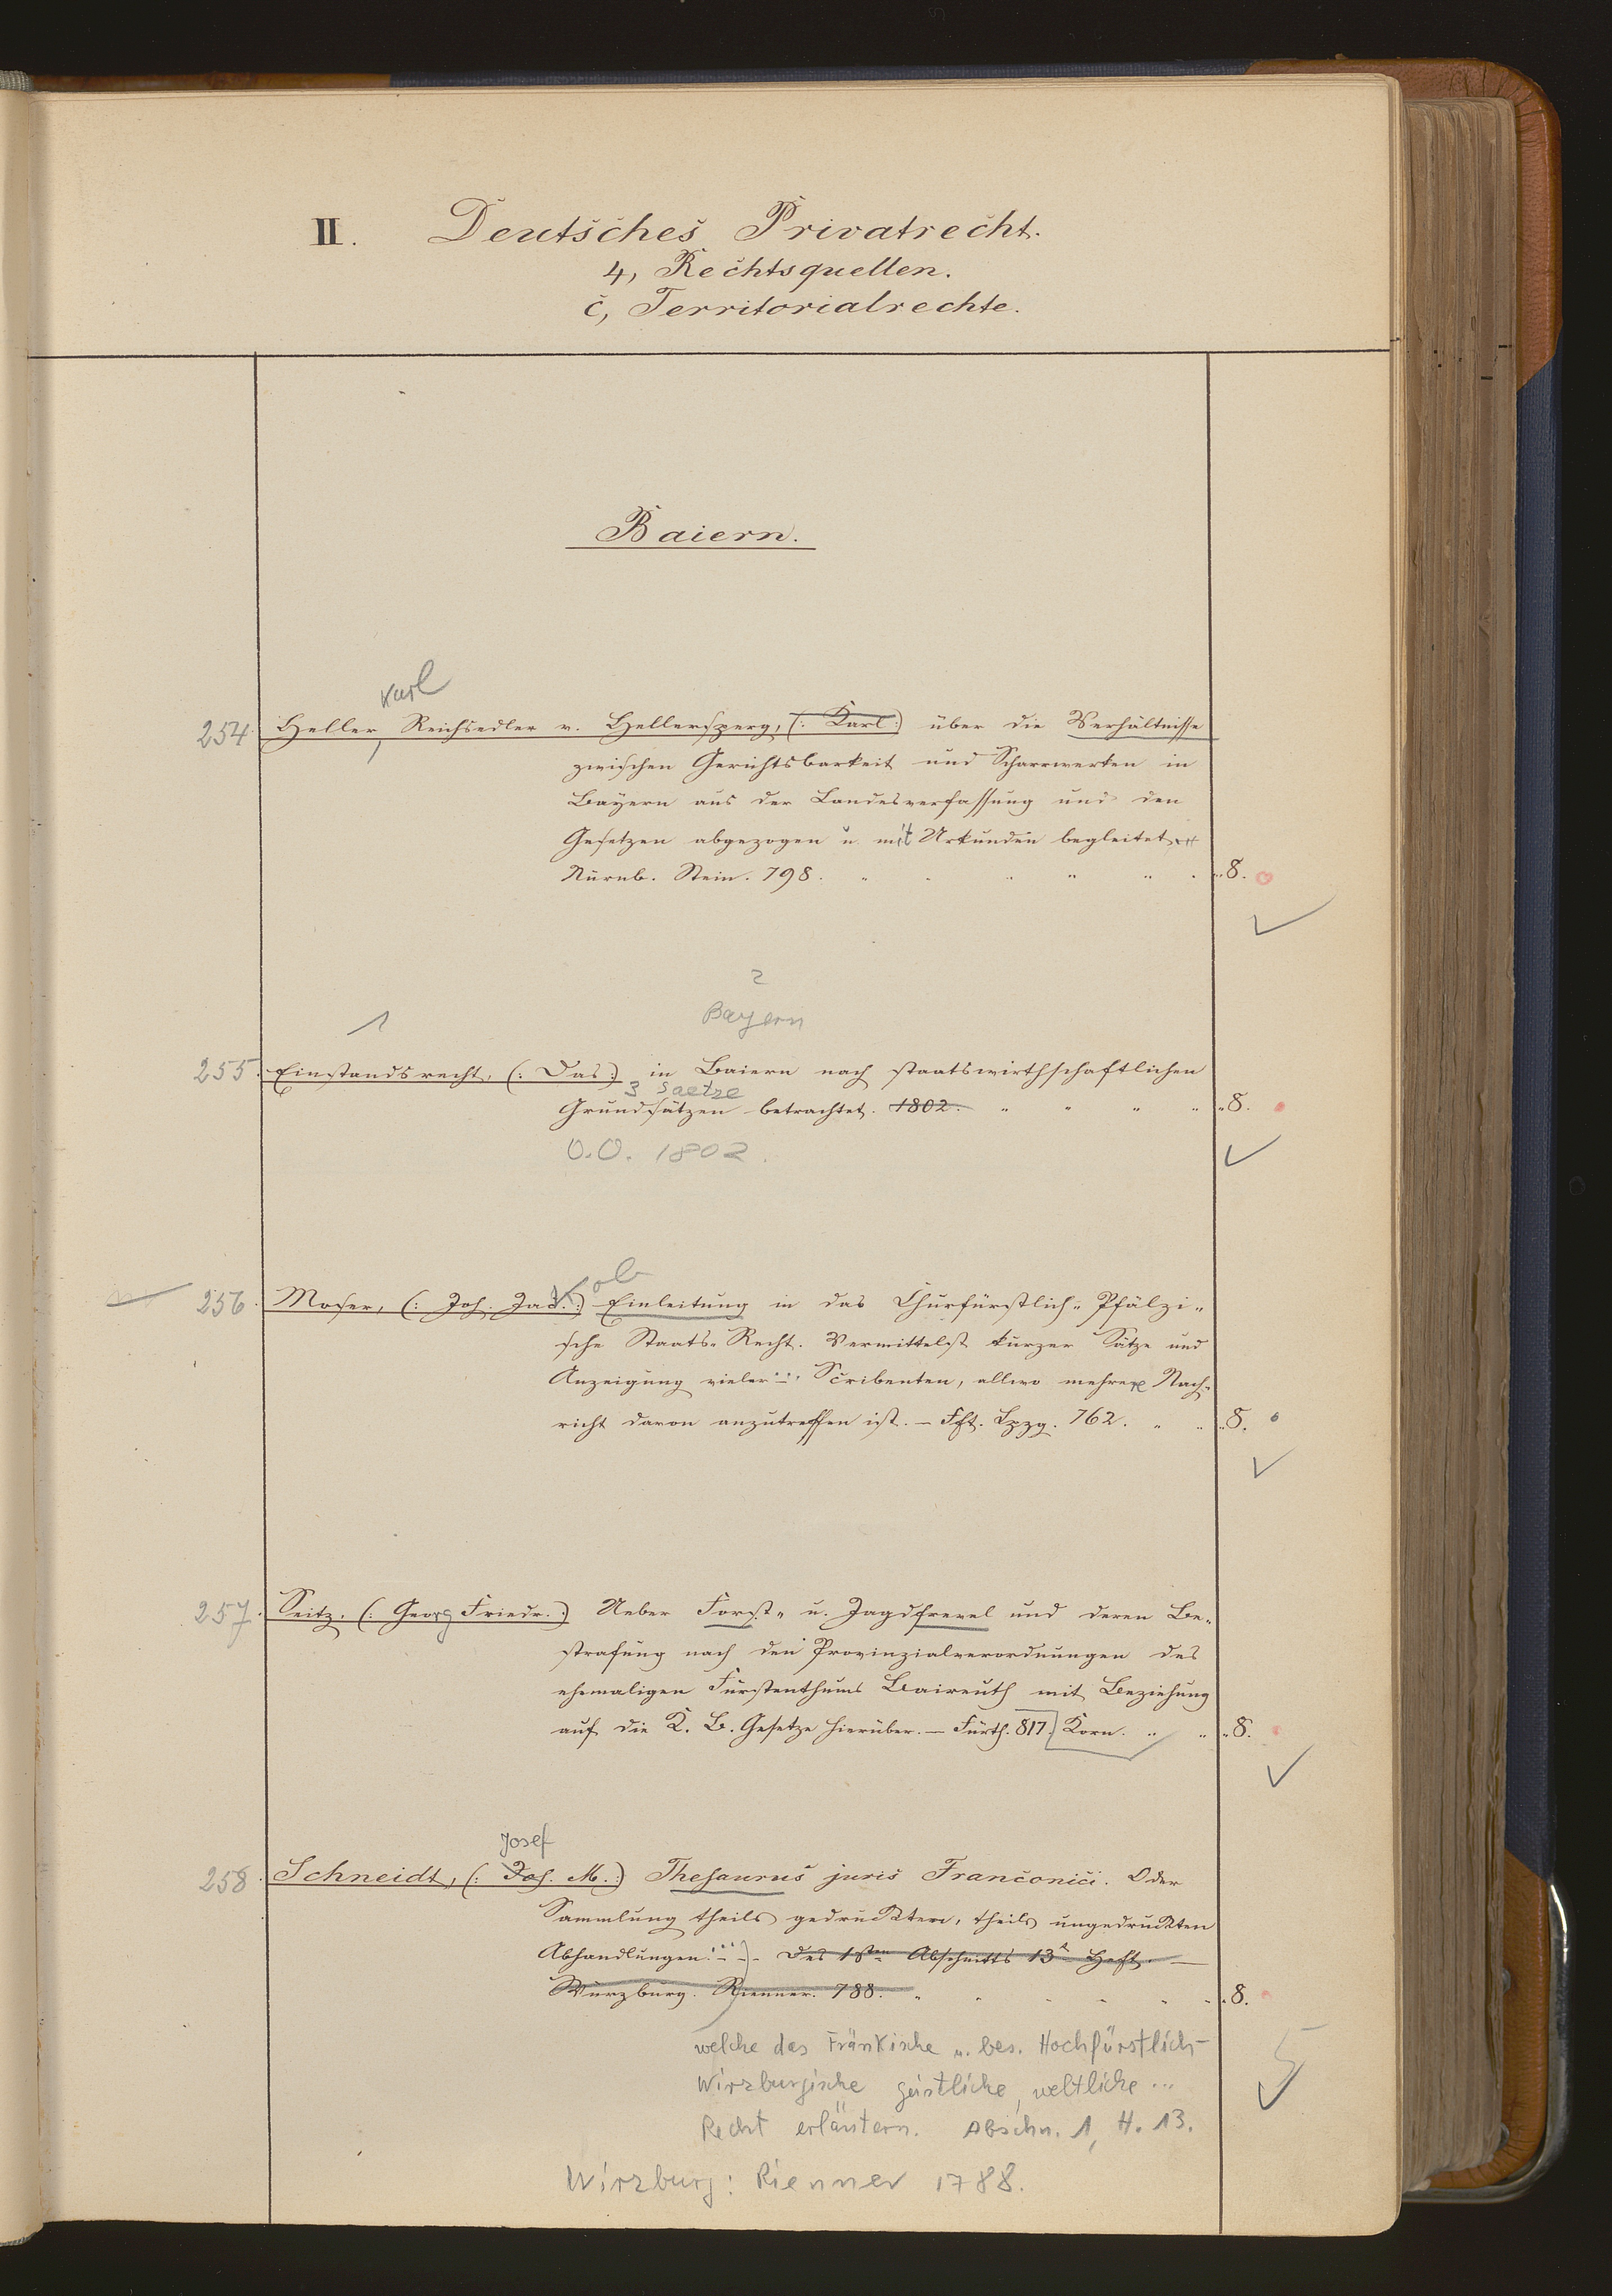 II. Deutsches Privatrecht.
4, Rechtsquellen.
c, Territorialrechte.
Baiern.
Karl
254. Heller, Reichsedler v. Hellersperg, (: Karl :) über die Verhältnisse
zwischen Gerichtsbarkeit und Scharrwerken in
Bayern aus der Landesverfassung und den
Gesetzen abgezogen u. mit Urkunden begleitet.
Nürnb. Stein. 798. " " " " " " 8.
2
1 Bayern
255. Einstandsrecht, (: Das :) in Baiern nach staatswirthschaftlichen
3 Saetze
Grundsätzen betrachtet. 1802. " " " " " 8.
O.O. 1802.
ob
256. Moser, (: Joh. Jak. :) Einleitung in das Churfürstlich-Pfälzi-
sche Staats-Recht. Vermittelst kurzer Sätze und
Anzeigung vieler ... Scribenten, allwo mehrere Nach-
richt davon anzutreffen ist. – Fft. Lpzg. 762. " " " 8.
257. Seitz, (: Georg Friedr. :) Ueber Forst- u. Jagdfrevel und deren Be-
strafung nach den Provinzialverordnungen des
ehemaligen Fürstenthums Baireuth mit Beziehung
auf die K. B. Gesetze hierüber. – Fürth. 817. Korn. " " " 8.
Josef
258. Schneidt, (: Jos. M. :) Thesaurus juris Franconici. Oder
Sammlung theils gedruckter, theils ungedruckten
Abhandlungen ... – Des 1sten Abschnitts 13s Heft. –
Würzburg. Rienner. 788. " " " " " " 8.
welche das Fränkische u. bes. Hochfürstlich-
Wirzburgische geistliche, weltliche ...
Recht erläutern. Abschn. 1, H. 13.
5
Wirzburg: Rienner 1788.